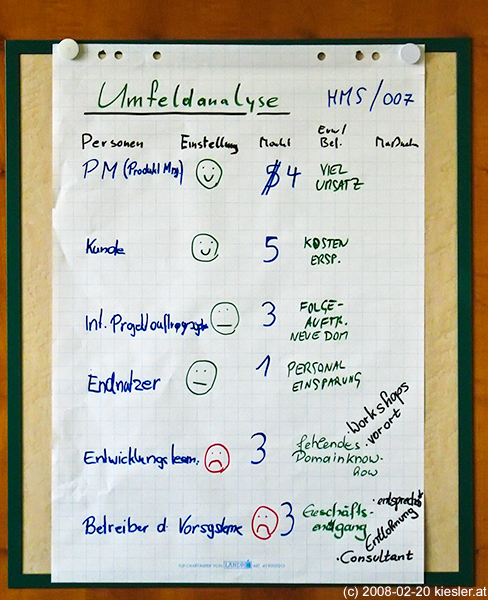 Umfeldanalyse HMS/007
Personen Einstellung Macht Erw/ Bef. Maßnahm
PM (Produkt Mng.) 4 VIEL UMSATZ
Kunde 5 KOSTEN ERSP.
Int. Projektauftraggeber 3 FOLGE-AUFTR. NEUE DOM
Endnutzer 1 PERSONAL EINSPARUNG
· Workshops
· vorort
Entwicklungsteam 3 fehlendes Domainknow-how
Betreiber d. Vorsysteme 3 Geschäfts-entgang
· entsprechende Entlohnung
· Consultant
LANDRE
(c) 2008-02-20 kiesler.at